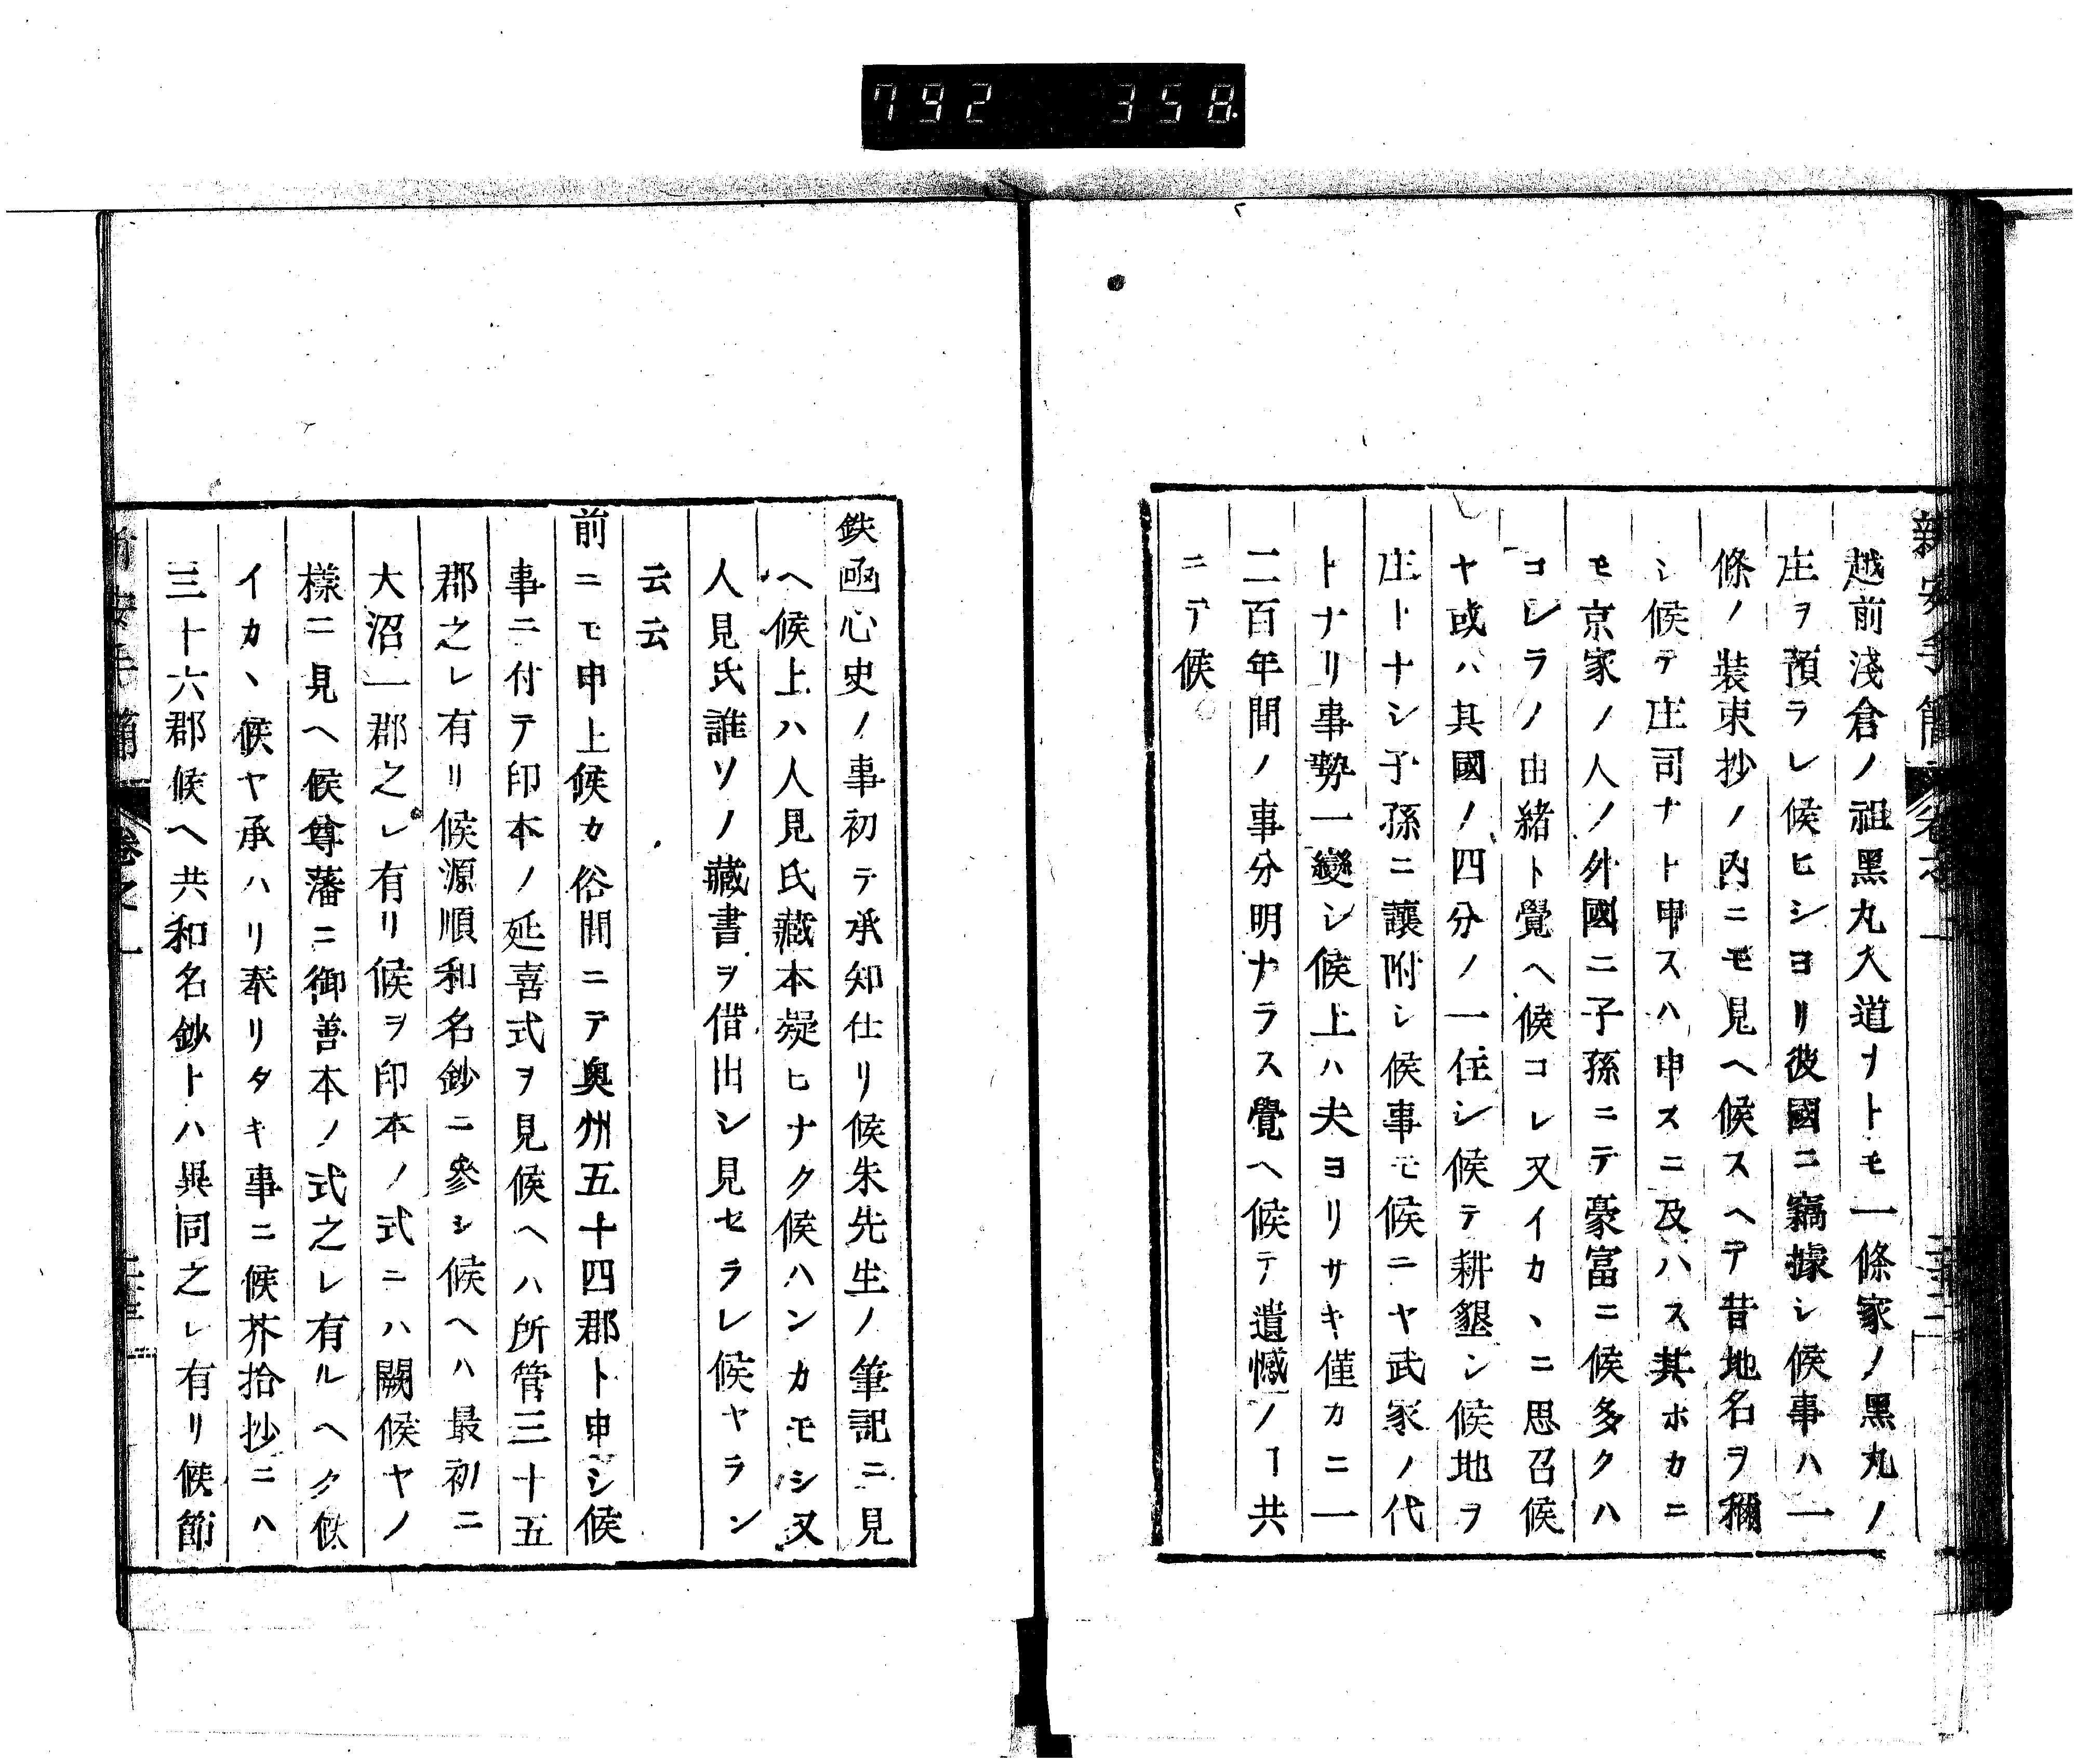 792 358
新安手簡 卷之一
越前淺倉ノ祖黑丸入道ナトモ一條家ノ黑丸ノ
庄ヲ預ラレ候ヒシヨリ彼國ニ竊據シ候事ハ一
條ノ裝束抄ノ內ニモ見ヘ候スヘテ昔地名ヲ稱
シ候テ庄司ナト申スハ申スニ及ハス其ホカニ
モ京家ノ人ノ外國ニ子孫ニテ豪富ニ候多クハ
コレラノ由緒ト覺ヘ候コレ又イカヽニ思召候
ヤ或ハ其國ノ四分ノ一住シ候テ耕墾シ候地ヲ
庄トナシ子孫ニ讓附シ候事モ候ニヤ武家ノ代
トナリ事勢一變シ候上ハ夫ヨリサキ僅カニ一
二百年間ノ事分明ナラス覺ヘ候テ遺憾ノヿ共
ニテ候
鉄凾心史ノ事初テ承知仕リ候朱先生ノ筆記ニ見
ヘ候上ハ人見氏藏本疑ヒナク候ハンカモシ又
人見氏誰ソノ藏書ヲ借出シ見セラレ候ヤラン
云云
前ニモ申上候カ俗間ニテ奥州五十四郡ト申シ候
事ニ付テ印本ノ延喜式ヲ見候ヘハ所管三十五
郡之レ有リ候源順和名鈔ニ參シ候ヘハ最初ニ
大沼一郡之レ有リ候ヲ印本ノ式ニハ闕候ヤノ
樣ニ見ヘ候尊藩ニ御善本ノ式之レ有ルヘク候
イカヽ候ヤ承ハリ奉リタキ事ニ候芥拾抄ニハ
三十六郡候ヘ共和名鈔トハ異同之レ有リ候節
新安手簡 卷之一